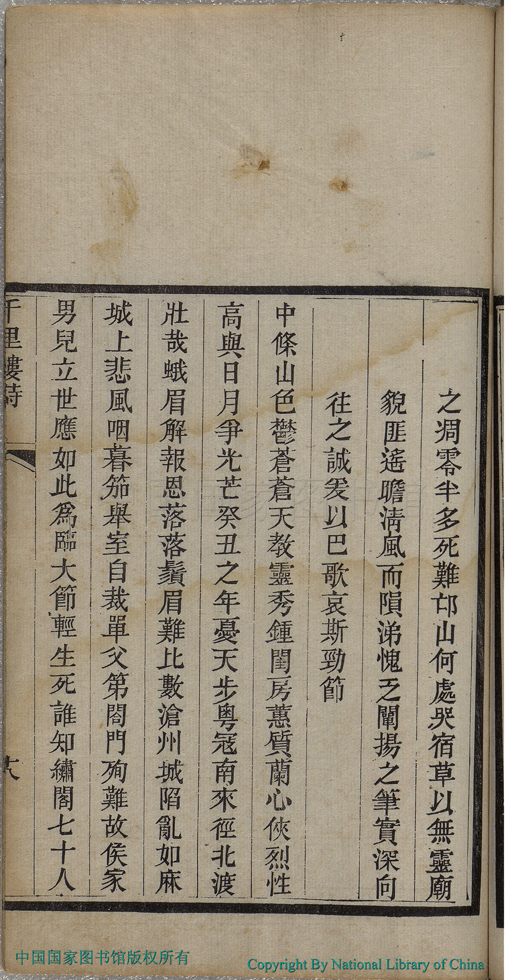 之凋零半多死難邙山何處哭宿草以無靈廟
貌匪遙瞻淸風而隕涕愧乏闡揚之筆實深向
往之誠爰以巴歌哀斯勁節
中條山色鬱蒼蒼天敎靈秀鍾閨房蕙質蘭心俠烈性
高與日月爭光芒癸丑之年憂天步粵寇南來徑北渡
壯哉蛾眉解報恩落落鬚眉難比數滄州城陷亂如麻
城上悲風咽暮笳舉室自裁單父第閤門殉難故侯家
男兒立世應如此爲臨大節輕生死誰知繡閣七十人
千里樓詩
六
中国国家图书馆版权所有
Copyright By National Library of China